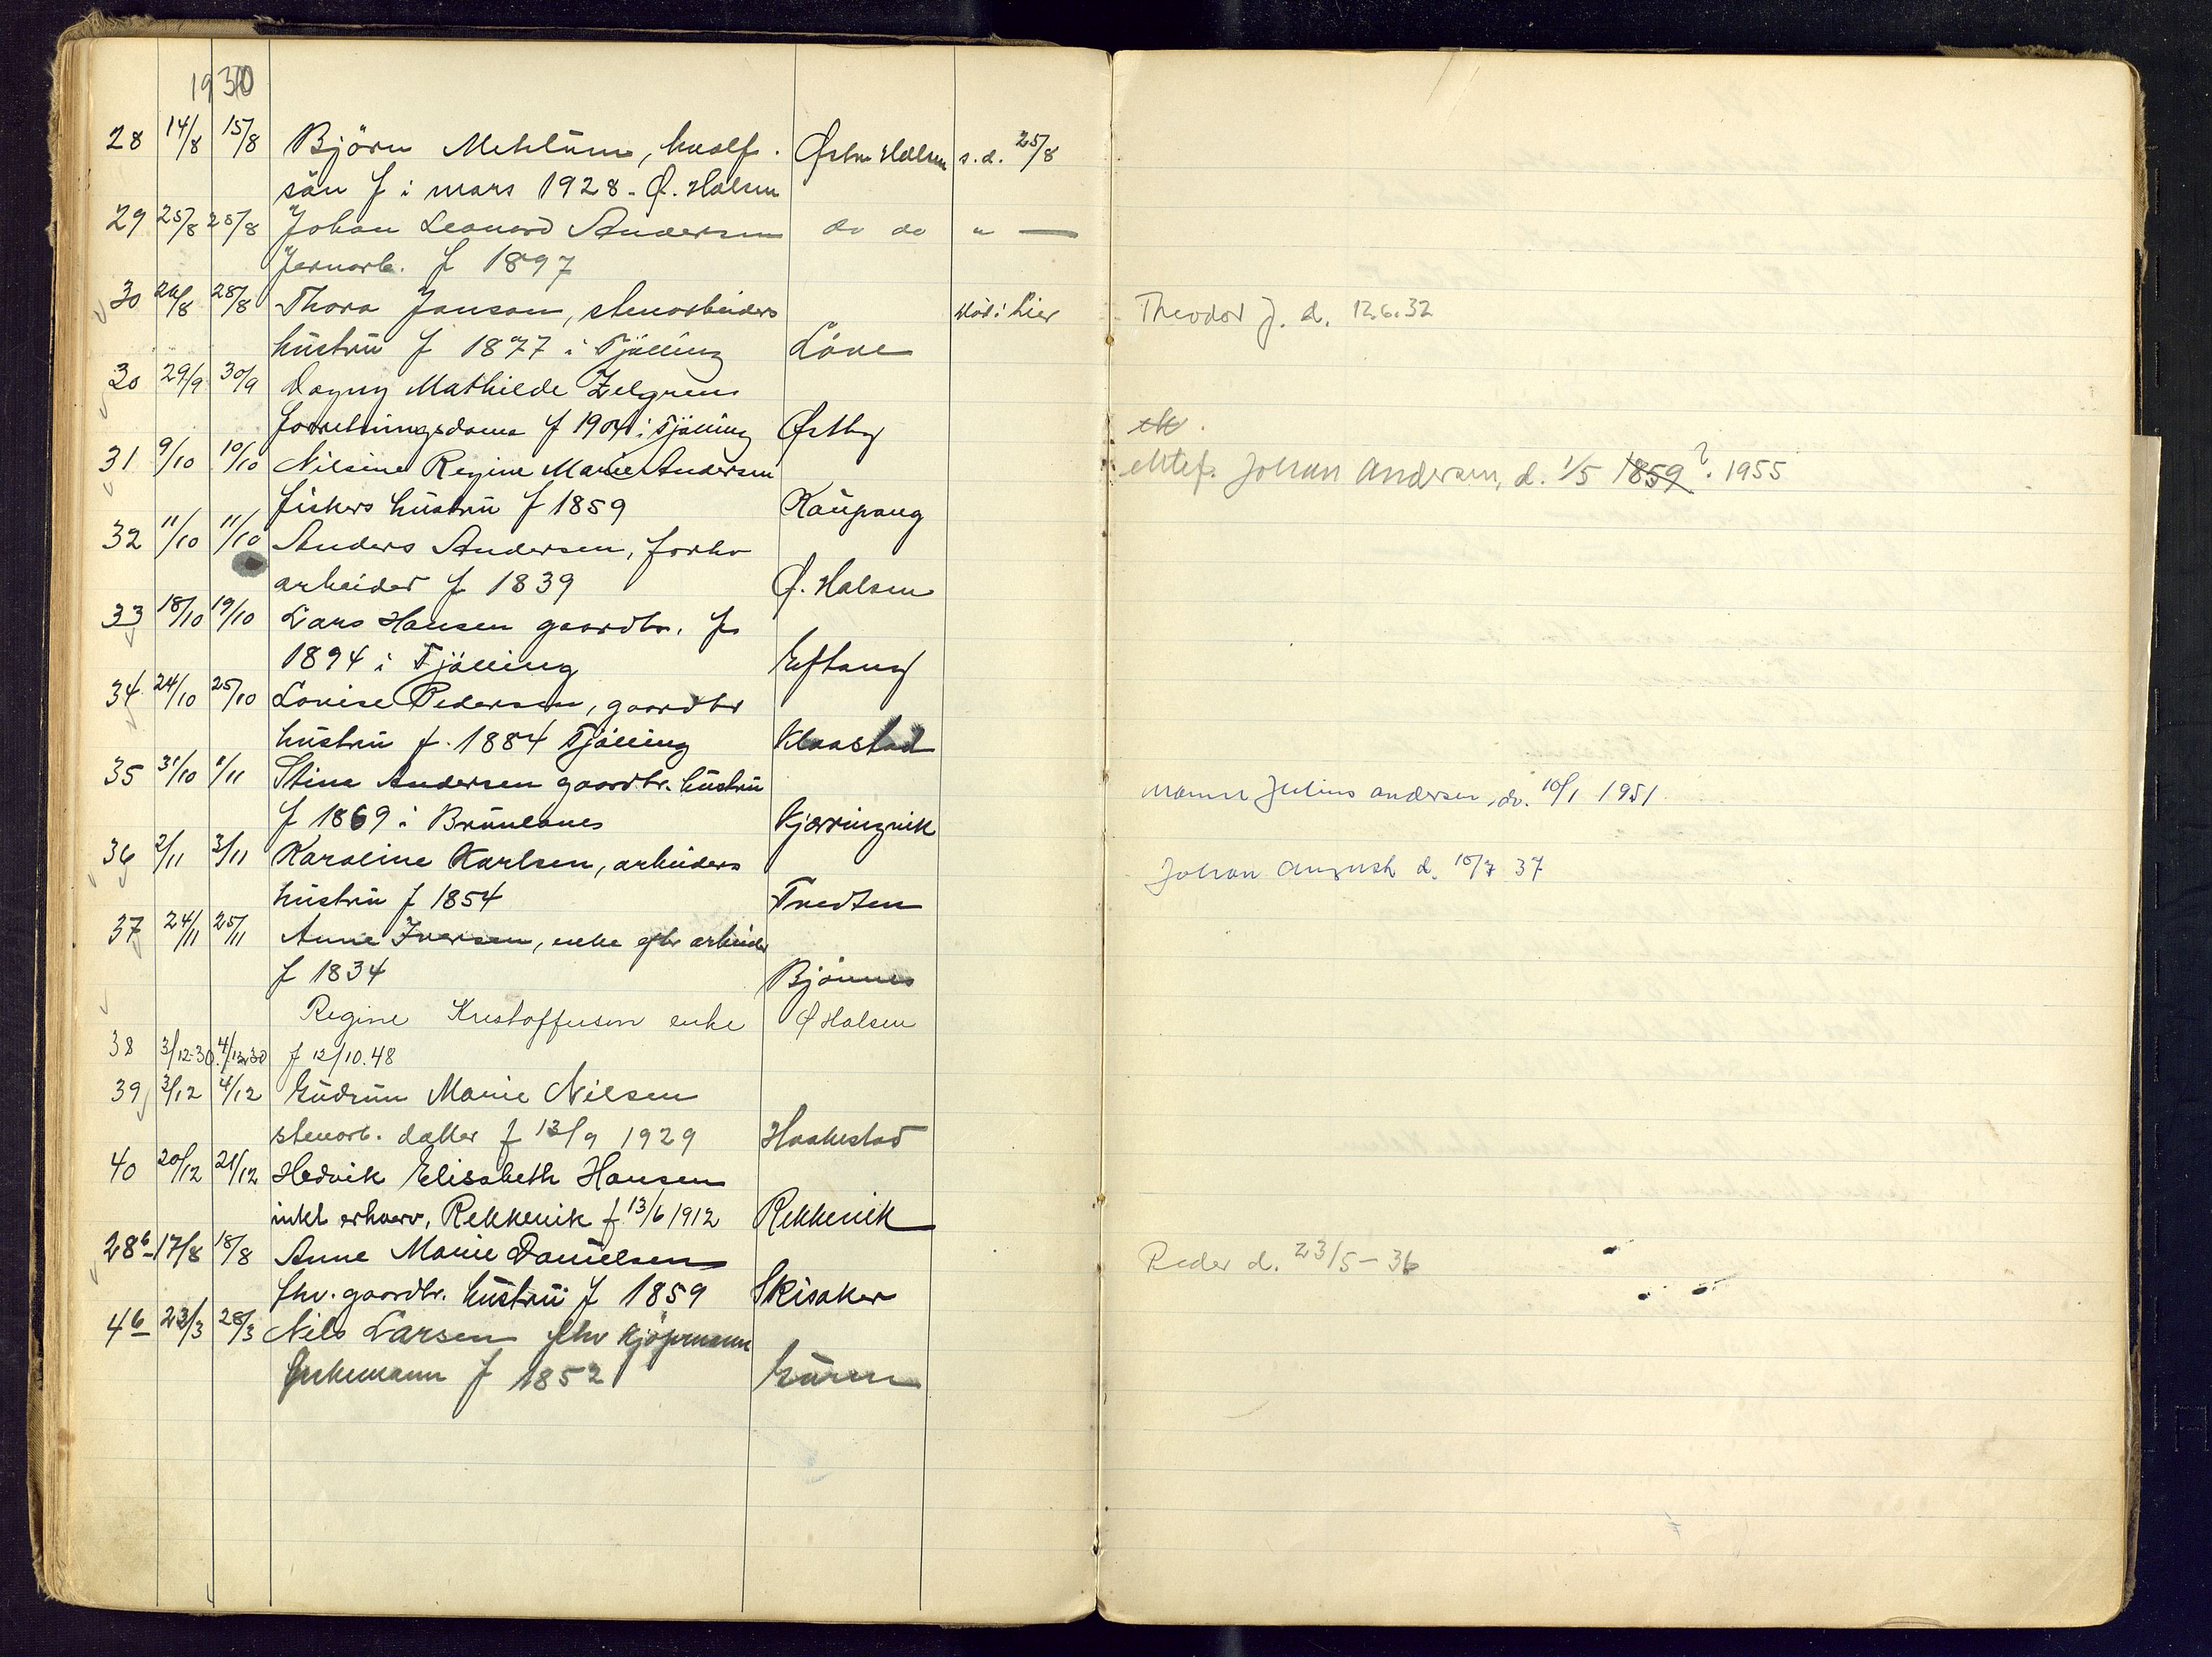 1930
28 14/8 15/8 Björn Mehlum, hvalf. Østre Halsen s.d. 25/8
sön f i mars 1928 - Ø. Halsen
29 25/8 25/8 Johan Leonard Andersen do do " —
Jernarb. f 1897
30 26/8 28/8 Thora Janson, stenarbeiders död i hier Theodor J. d. 12.6.32
hustru f 1877 i Tjölling Löve
30 29/9 30/9 Dagny Mathilde Zelgren
forretningsdame f 1904 i Tjölling Østby
31 9/10 10/10 Nilsine Regine Marie Andersen Ektef. Johan Andersen, d. 1/5 1859 ? . 1955
fiskers hustru f 1859 Kaupang
32 11/10 11/10 Anders Andersen, forhv
arbeider f 1839 Ø. Halsen
33 18/10 19/10 Lars Hansen gaardbr. f
1894 i Tjölling Eftang
34 24/10 25/10 Lovise Pedersen, gaardbr
hustru f. 1884 Tjölling Klaastad
35 31/10 1/11 Stina Andersen gaardbr. hustru Mannen Julius Andersen, dö. 10/1 1951.
f 1869 i Brunlanes Kjærringvik
36 2/11 3/11 Karoline Karlsen, arbeiders Johan August d. 10/7 37
hustru f 1854 Tvedten
37 24/11 25/11 Anne Iversen, enke eftr arbeider
f 1834 Bjönnes
Regine Kristoffersen enke Ø Halsen
38 3/12-30 4/12 30 f 12/10.48
39 3/12 4/12 Gudrun Marie Nilsen
stenarb. datter f 13/9 1929 Haakestad
40 20/12 21/12 Hedvik Elisabeth Hansen
intet erhverv, Rekkevik f 13/6 1912 Rekkevik
28b 17/8 18/8 Anne Marie Danielsen Peder d. 23/5-36
fhv. gaardbr. hustru f 1859 Skisaker
4b 23/3 28/3 Nils Larsen fhv kjöpmann
Enkemann f 1852 Guren